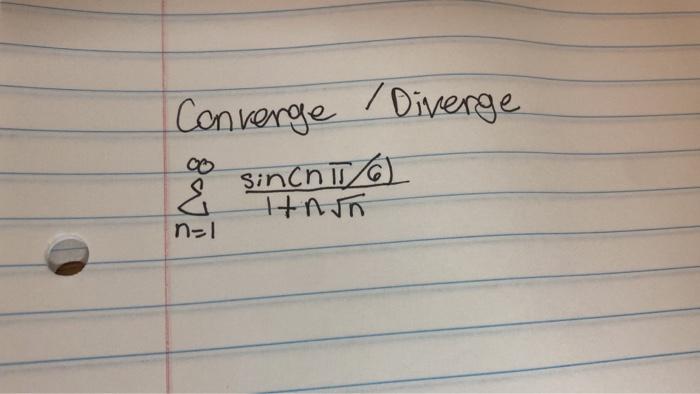 Converge / Diverge
∞
Σ sin(nπ/6) / 1+n√n
n=1